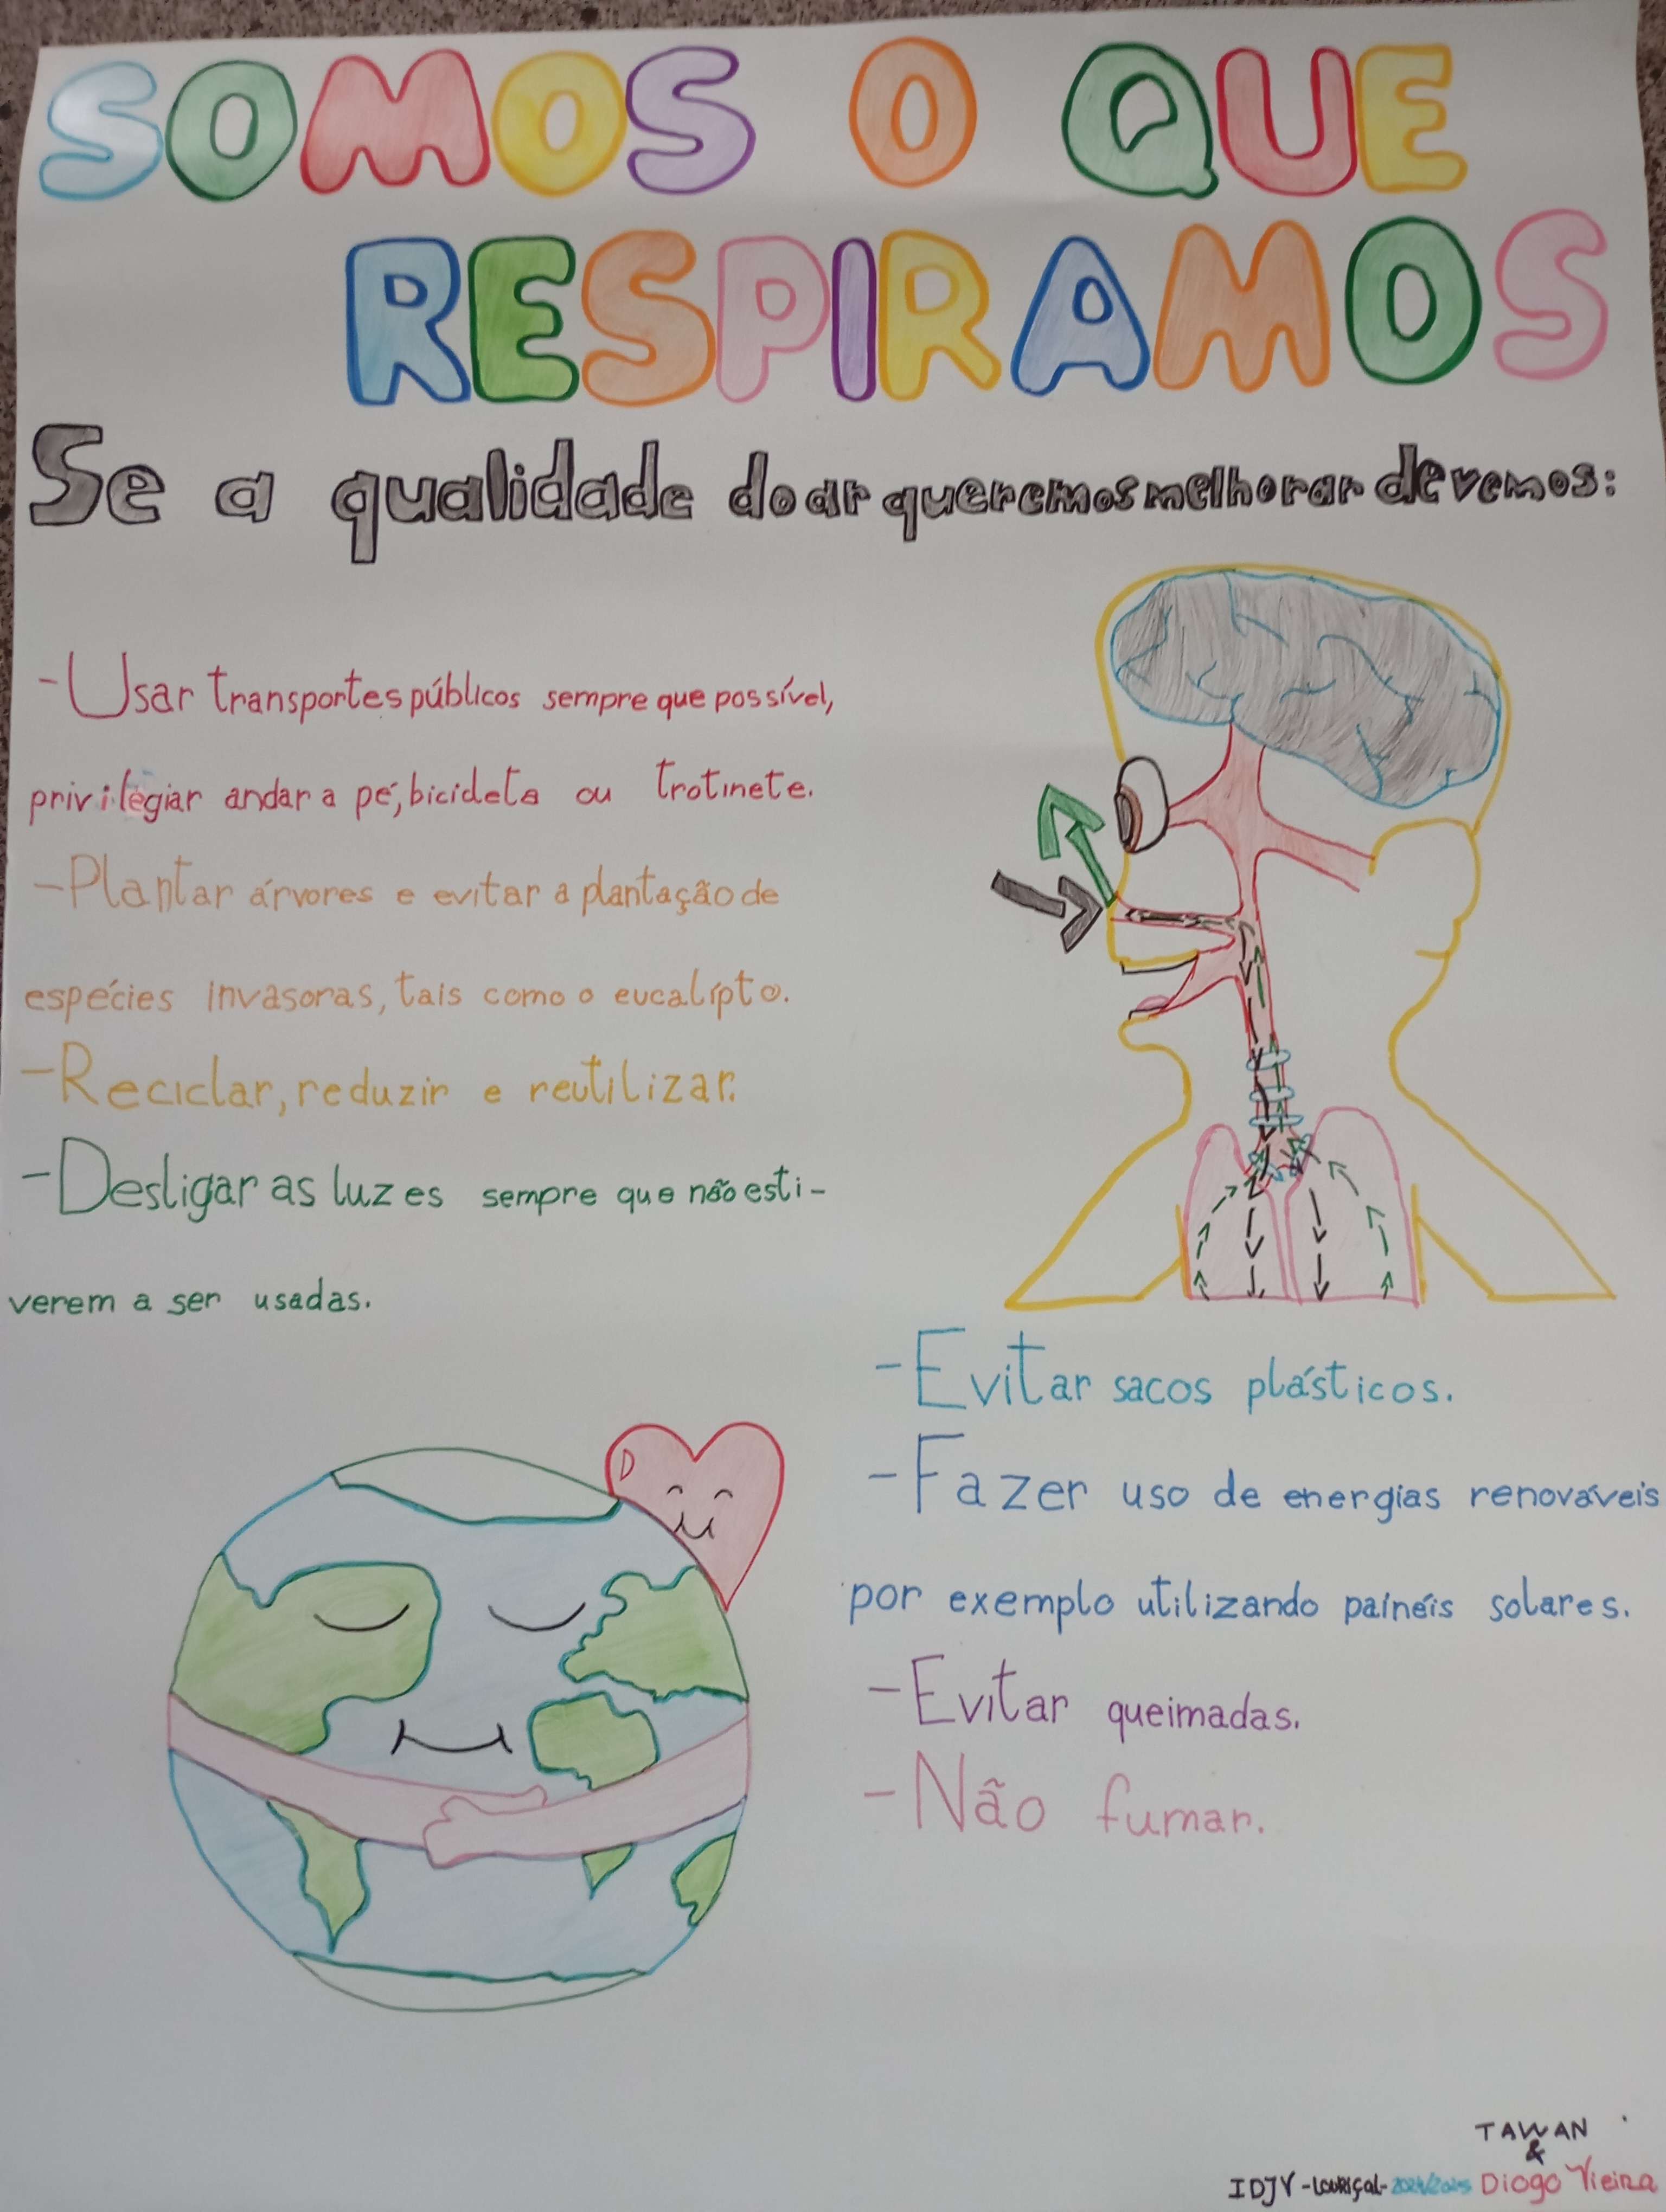 SOMOS O QUE
RESPIRAMOS
Se a qualidade do ar queremos melhorar devemos:
- Usar transportes públicos sempre que possível,
privilegiar andar a pé, bicicleta ou trotinete.
- Plantar árvores e evitar a plantação de
espécies invasoras, tais como o eucalípto.
- Reciclar, reduzir e reutilizar.
- Desligar as luzes sempre que não esti-
verem a ser usadas.
- Evitar sacos plásticos.
- Fazer uso de energias renováveis
por exemplo utilizando painéis solares.
- Evitar queimadas.
- Não fumar.
TAWAN
&
IDJV - LOURIÇAL - 2024/2025 Diogo Vieira